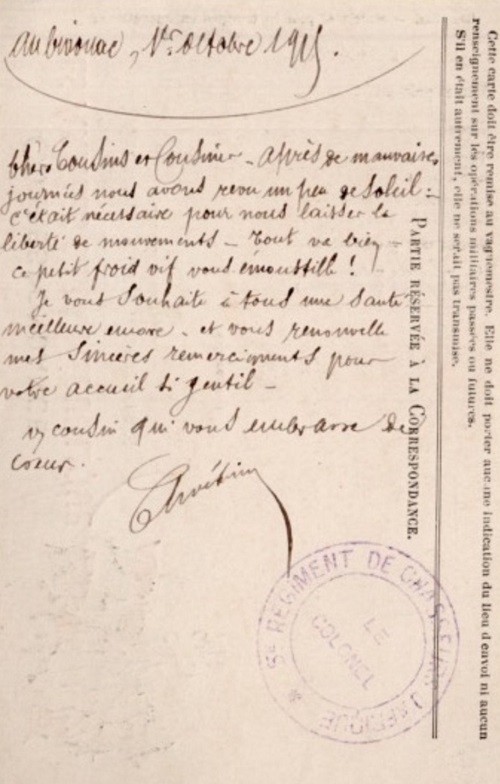 Au bivouac, 1er Octobre 1915.
Chers Cousins et Cousine - Après de mauvaises
journées nous avons revu un peu de Soleil :
c'était nécessaire pour nous laisser la
liberté de mouvements - Tout va bien -
ce petit froid vif vous émoustille !
Je vous Souhaite à tous une Santé
meilleure encore - et vous renouvelle
mes Sincères remerciements pour
votre accueil si gentil -
cousin qui vous embrasse de
coeur.
Chrétien
PARTIE RÉSERVÉE À LA CORRESPONDANCE.
Cette carte doit être remise au vaguemestre. Elle ne doit porter aucune indication du lieu d'envoi ni aucun
renseignement sur les opérations militaires passées ou futures.
S'il en était autrement, elle ne serait pas transmise.
5e RÉGIMENT DE CHASSEURS D'AFRIQUE *
LE
COLONEL